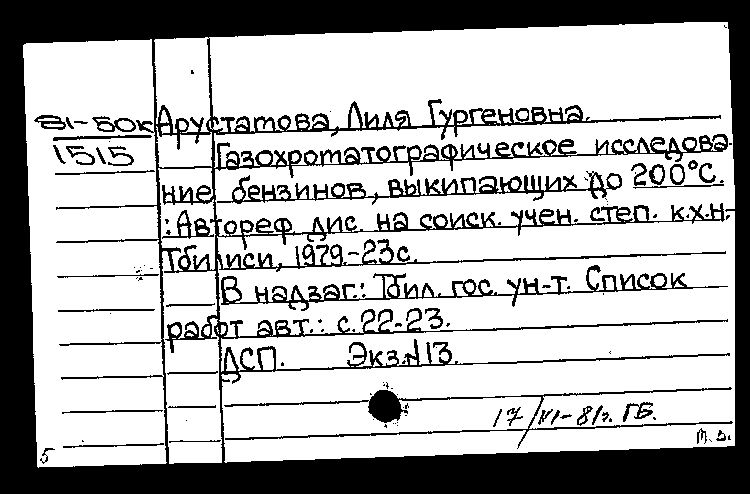 81-50к Арустатова, Лиля Гургеновна.
1515 Газохротатографическое исследова
ние бензинов, выкипающих до 200°С.
:Автореф. дис. на соиск. учен. степ. к.х.н.-
Тбилиси, 1979.-23с.
В надзаг.: Тбил. гос. ун-т. Список
работ авт.: с.22-23.
ДСП. Экз.№13.
17/VI-81г. ГБ.
5